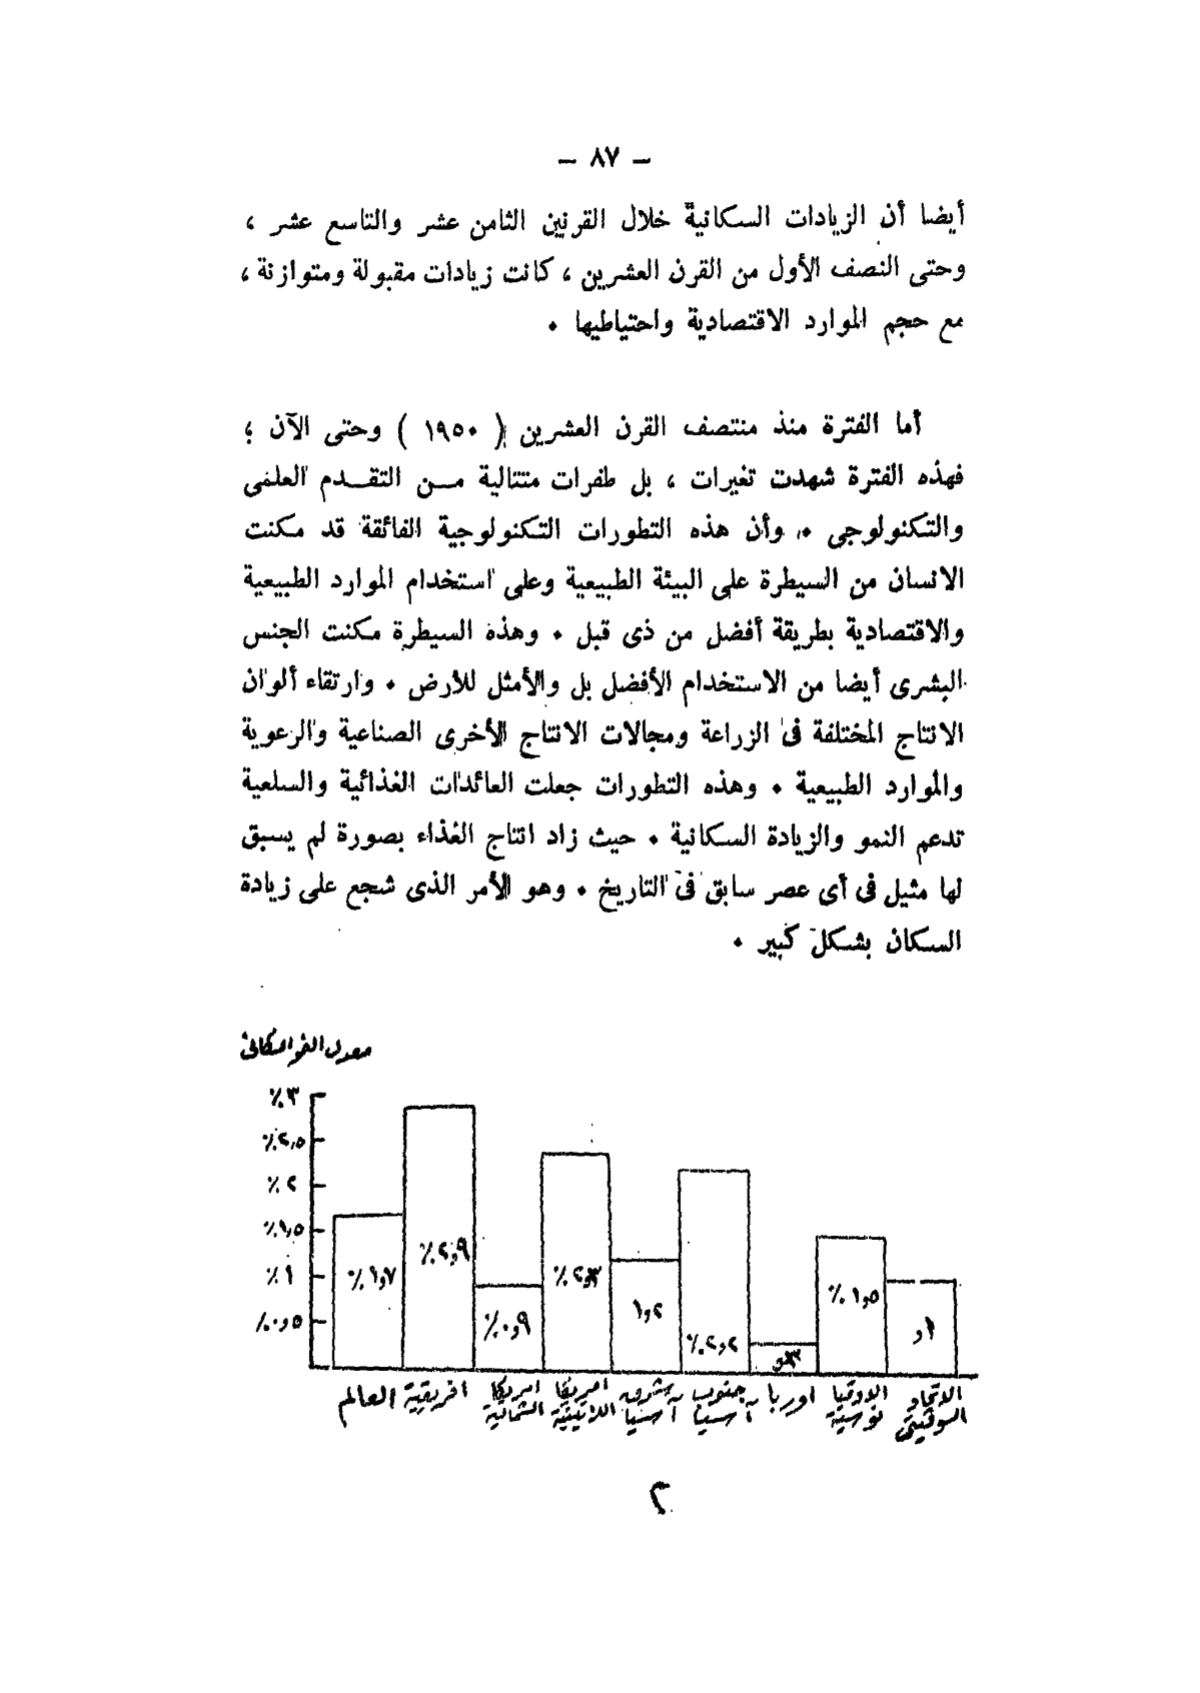 — ٨٧ —
أيضا أن الزيادات السكانية خلال القرنين الثامن عشر والتاسع عشر ،
وحتى النصف الأول من القرن العشرين ، كانت زيادات مقبولة ومتوازنة ،
مع حجم الموارد الاقتصادية واحتياطيها ٠
أما الفترة منذ منتصف القرن العشرين ( ١٩٥٠ ) وحتى الآن ؛
فهذه الفترة شهدت تغيرات ، بل طفرات متتالية مــن التقــدم العلمى
والتكنولوجى ٠ وأن هذه التطورات التكنولوجية الفائقة قد مكنت
الانسان من السيطرة على البيئة الطبيعية وعلى استخدام الموارد الطبيعية
والاقتصادية بطريقة أفضل من ذى قبل ٠ وهذه السيطرة مكنت الجنس
البشرى أيضا من الاستخدام الأفضل بل والأمثل للأرض ٠ وارتقاء ألوان
الانتاج المختلفة فى الزراعة ومجالات الانتاج الأخرى الصناعية والرعوية
والموارد الطبيعية ٠ وهذه التطورات جعلت العائدات الغذائية والسلعية
تدعم النمو والزيادة السكانية ٠ حيث زاد انتاج الغذاء بصورة لم يسبق
لها مثيل فى أى عصر سابق فى التاريخ ٠ وهو الأمر الذى شجع على زيادة
السكان بشكل كبير ٠
معدل النمو السكانى
٣٪
٢,٥٪
٢٪
١,٥٪
١٪
٠,٥٪
١,٧٪
٢,٩٪
٠,٩٪
٢,٣٪
١,٢
٢,٢٪
٣و
١,٥٪
١و
العالم
افريقية
امريكا الشمالية
امريكا اللاتينية
شرق آسيا
جنوب آسيا
اوربا
الاوقيا نوسية
الاتحاد السوفيتى
٢